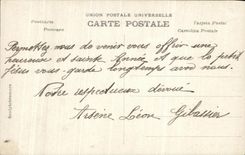 UNION POSTALE UNIVERSELLE
Postkarte
CARTE POSTALE
Tarjeta Postal
Postcard
Cartolina Postale
Permettez vous de venir vous offrir une
heureuse et sainte Année et que le petit
Jésus vous garde longtemps avec nous.
Votre respectueux dévoué
Arsène Léon Gibassier